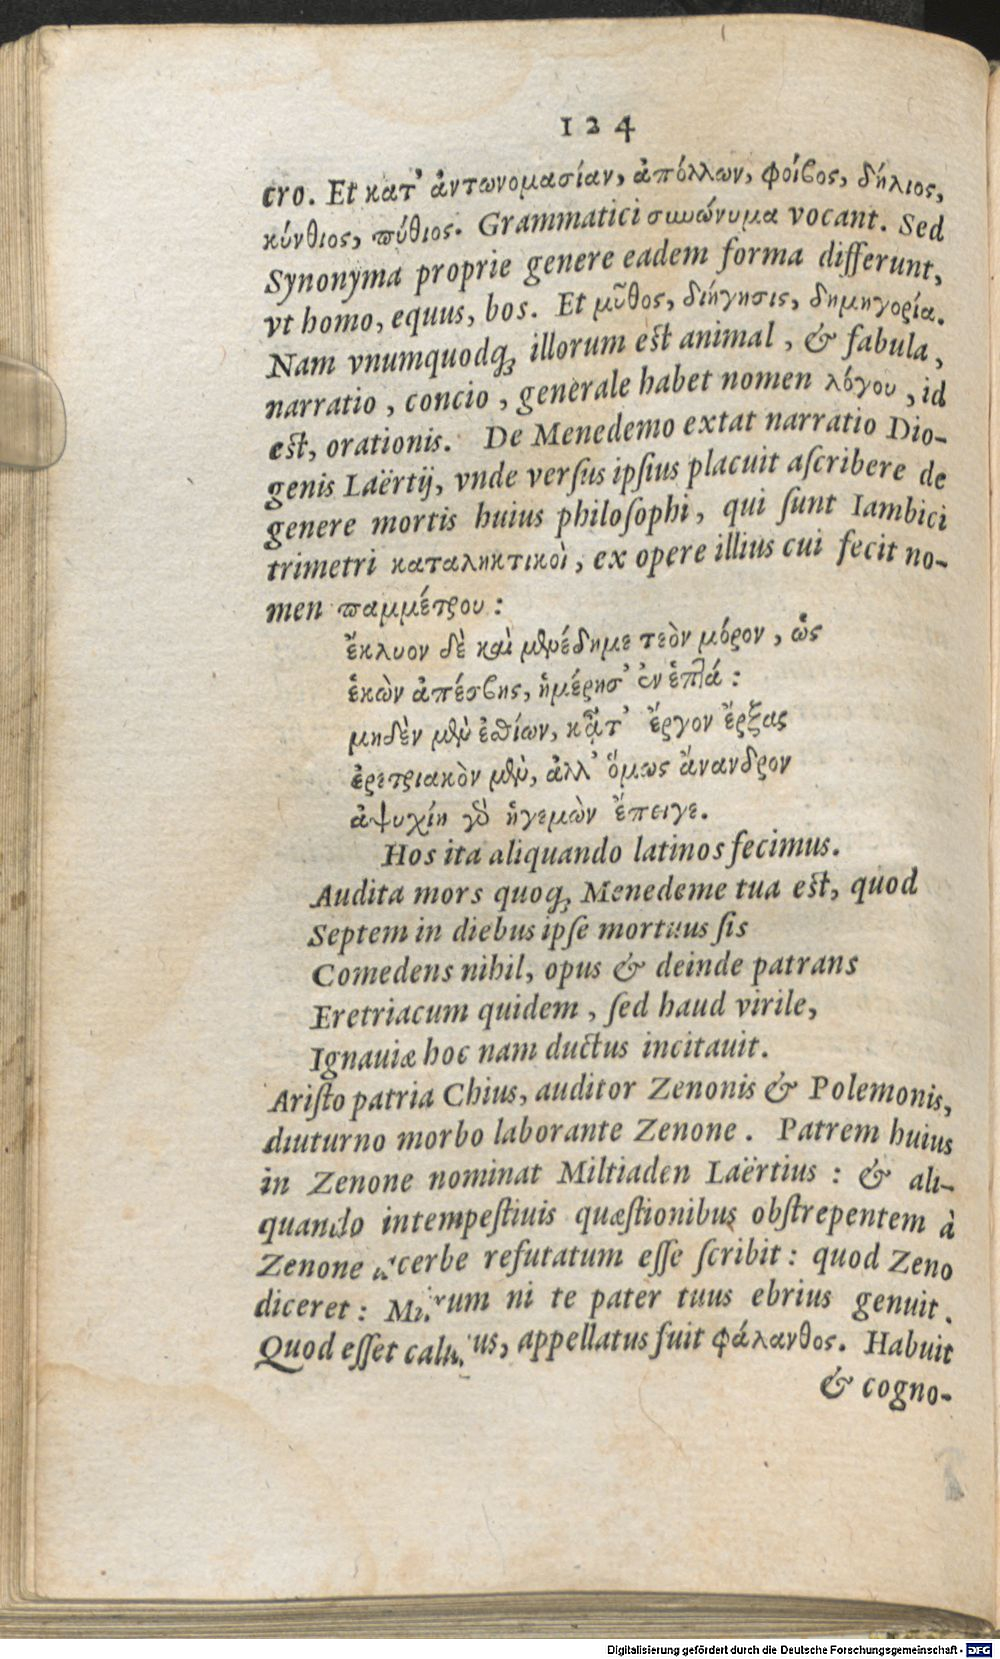 124
cro. Et κατ’ ἀντωνομασίαν, ἀπόλλων, φοῖβος, δήλιος,
κύνθιος, πύθιος. Grammatici συνώνυμα vocant. Sed
Synonyma proprie genere eadem forma differunt,
vt homo, equus, bos. Et μῦθος, διήγησις, δημηγορία.
Nam vnumquodq; illorum est animal, & fabula,
narratio, concio, generale habet nomen λόγου, id
est, orationis. De Menedemo extat narratio Dio-
genis Laërtij, vnde verſus ipſius placuit aſcribere de
genere mortis huius philoſophi, qui ſunt Iambici
trimetri καταληκτικοὶ, ex opere illius cui fecit no-
men παμμέτρου:
ἔκλυον δὲ καὶ μενέδημε τεὸν μόρον, ὡς
ἑκὼν ἀπέσβης, ἡμέρησ’ ἐν ἑπτά:
μηδὲν μὲν ἐσθίων, κᾆτ’ ἔργον ἔρξας
ἐρετριακὸν μὲν, ἀλλ’ ὅμως ἄνανδρον
ἀψυχίη γὰρ ἡγεμὼν ἔπειγε.
Hos ita aliquando latinos fecimus.
Audita mors quoq; Menedeme tua est, quod
Septem in diebus ipſe mortuus ſis
Comedens nihil, opus & deinde patrans
Eretriacum quidem, ſed haud virile,
Ignauiæ hoc nam ductus incitauit.
Ariſto patria Chius, auditor Zenonis & Polemonis,
diuturno morbo laborante Zenone. Patrem huius
in Zenone nominat Miltiaden Laërtius: & ali-
quando intempeſtiuis quæſtionibus obſtrepentem à
Zenone acerbe refutatum eſſe ſcribit: quod Zeno
diceret: Mirum ni te pater tuus ebrius genuit.
Quod eſſet caluus, appellatus fuit φάλανθος. Habuit
& cogno-
Digitalisierung gefördert durch die Deutsche Forschungsgemeinschaft - DFG